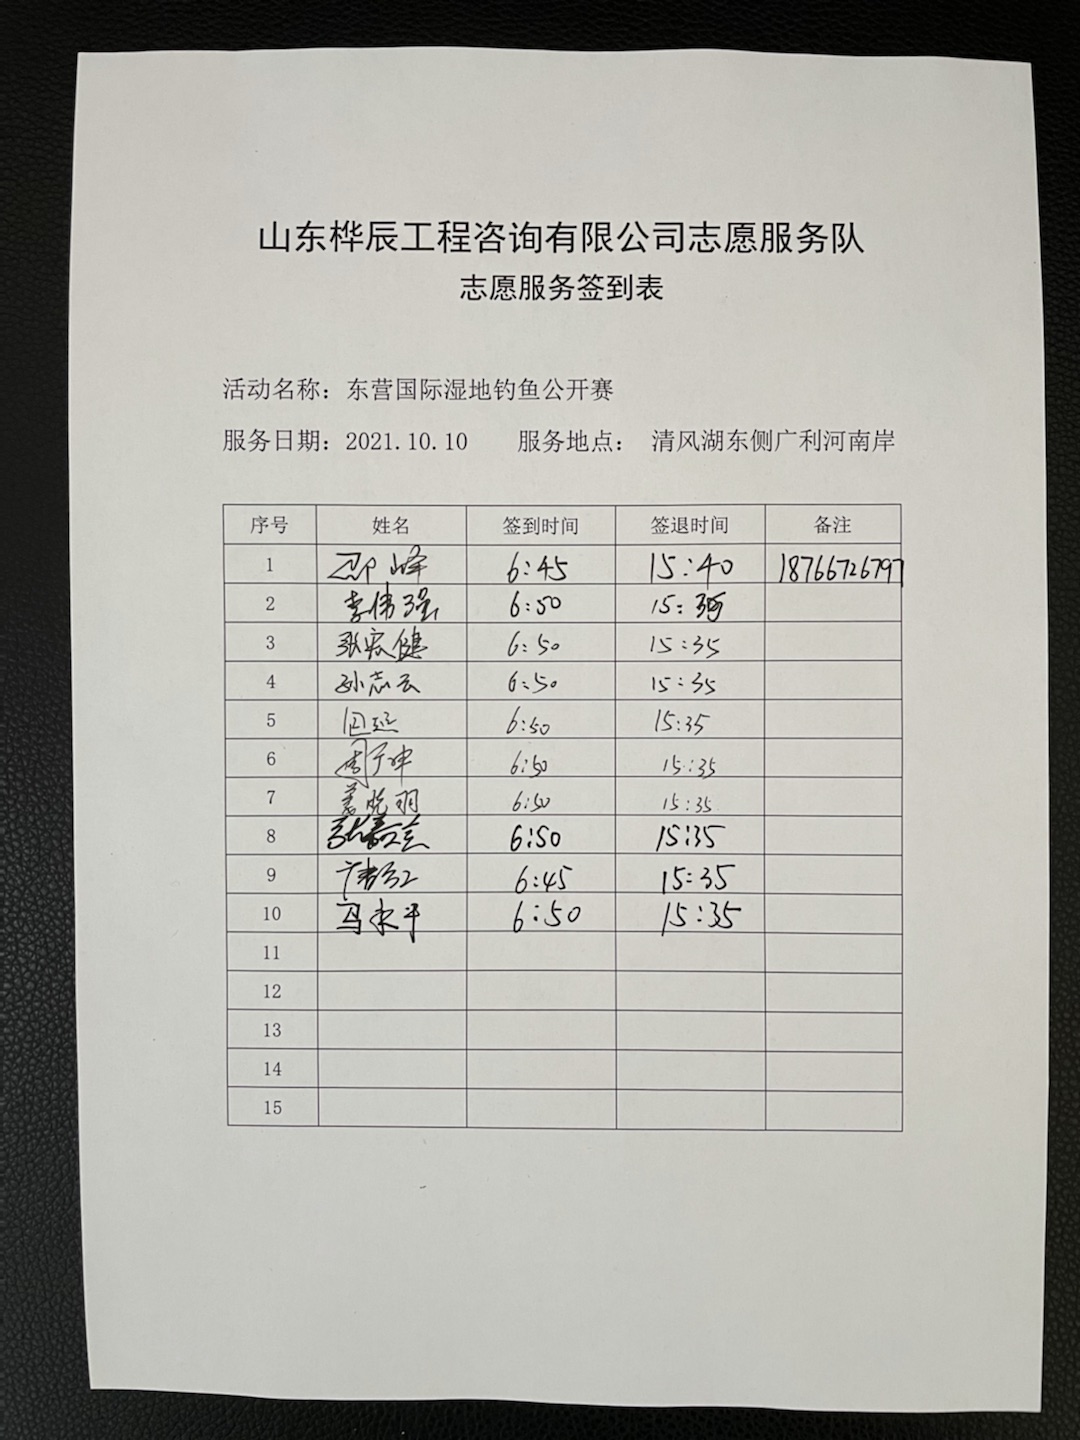 山东桦辰工程咨询有限公司志愿服务队
志愿服务签到表
活动名称：东营国际湿地钓鱼公开赛
服务日期：2021.10.10 服务地点： 清风湖东侧广利河南岸
序号 姓名 签到时间 签退时间 备注
1 邵峰 6:45 15:40 18766726797
2 李伟强 6:50 15:35
3 张宏健 6:50 15:35
4 孙志云 6:50 15:35
5 6:50 15:35
6 周于冲 6:50 15:35
7 姜晓羽 6:50 15:35
8 6:50 15:35
9 6:45 15:35
10 马永平 6:50 15:35
11
12
13
14
15